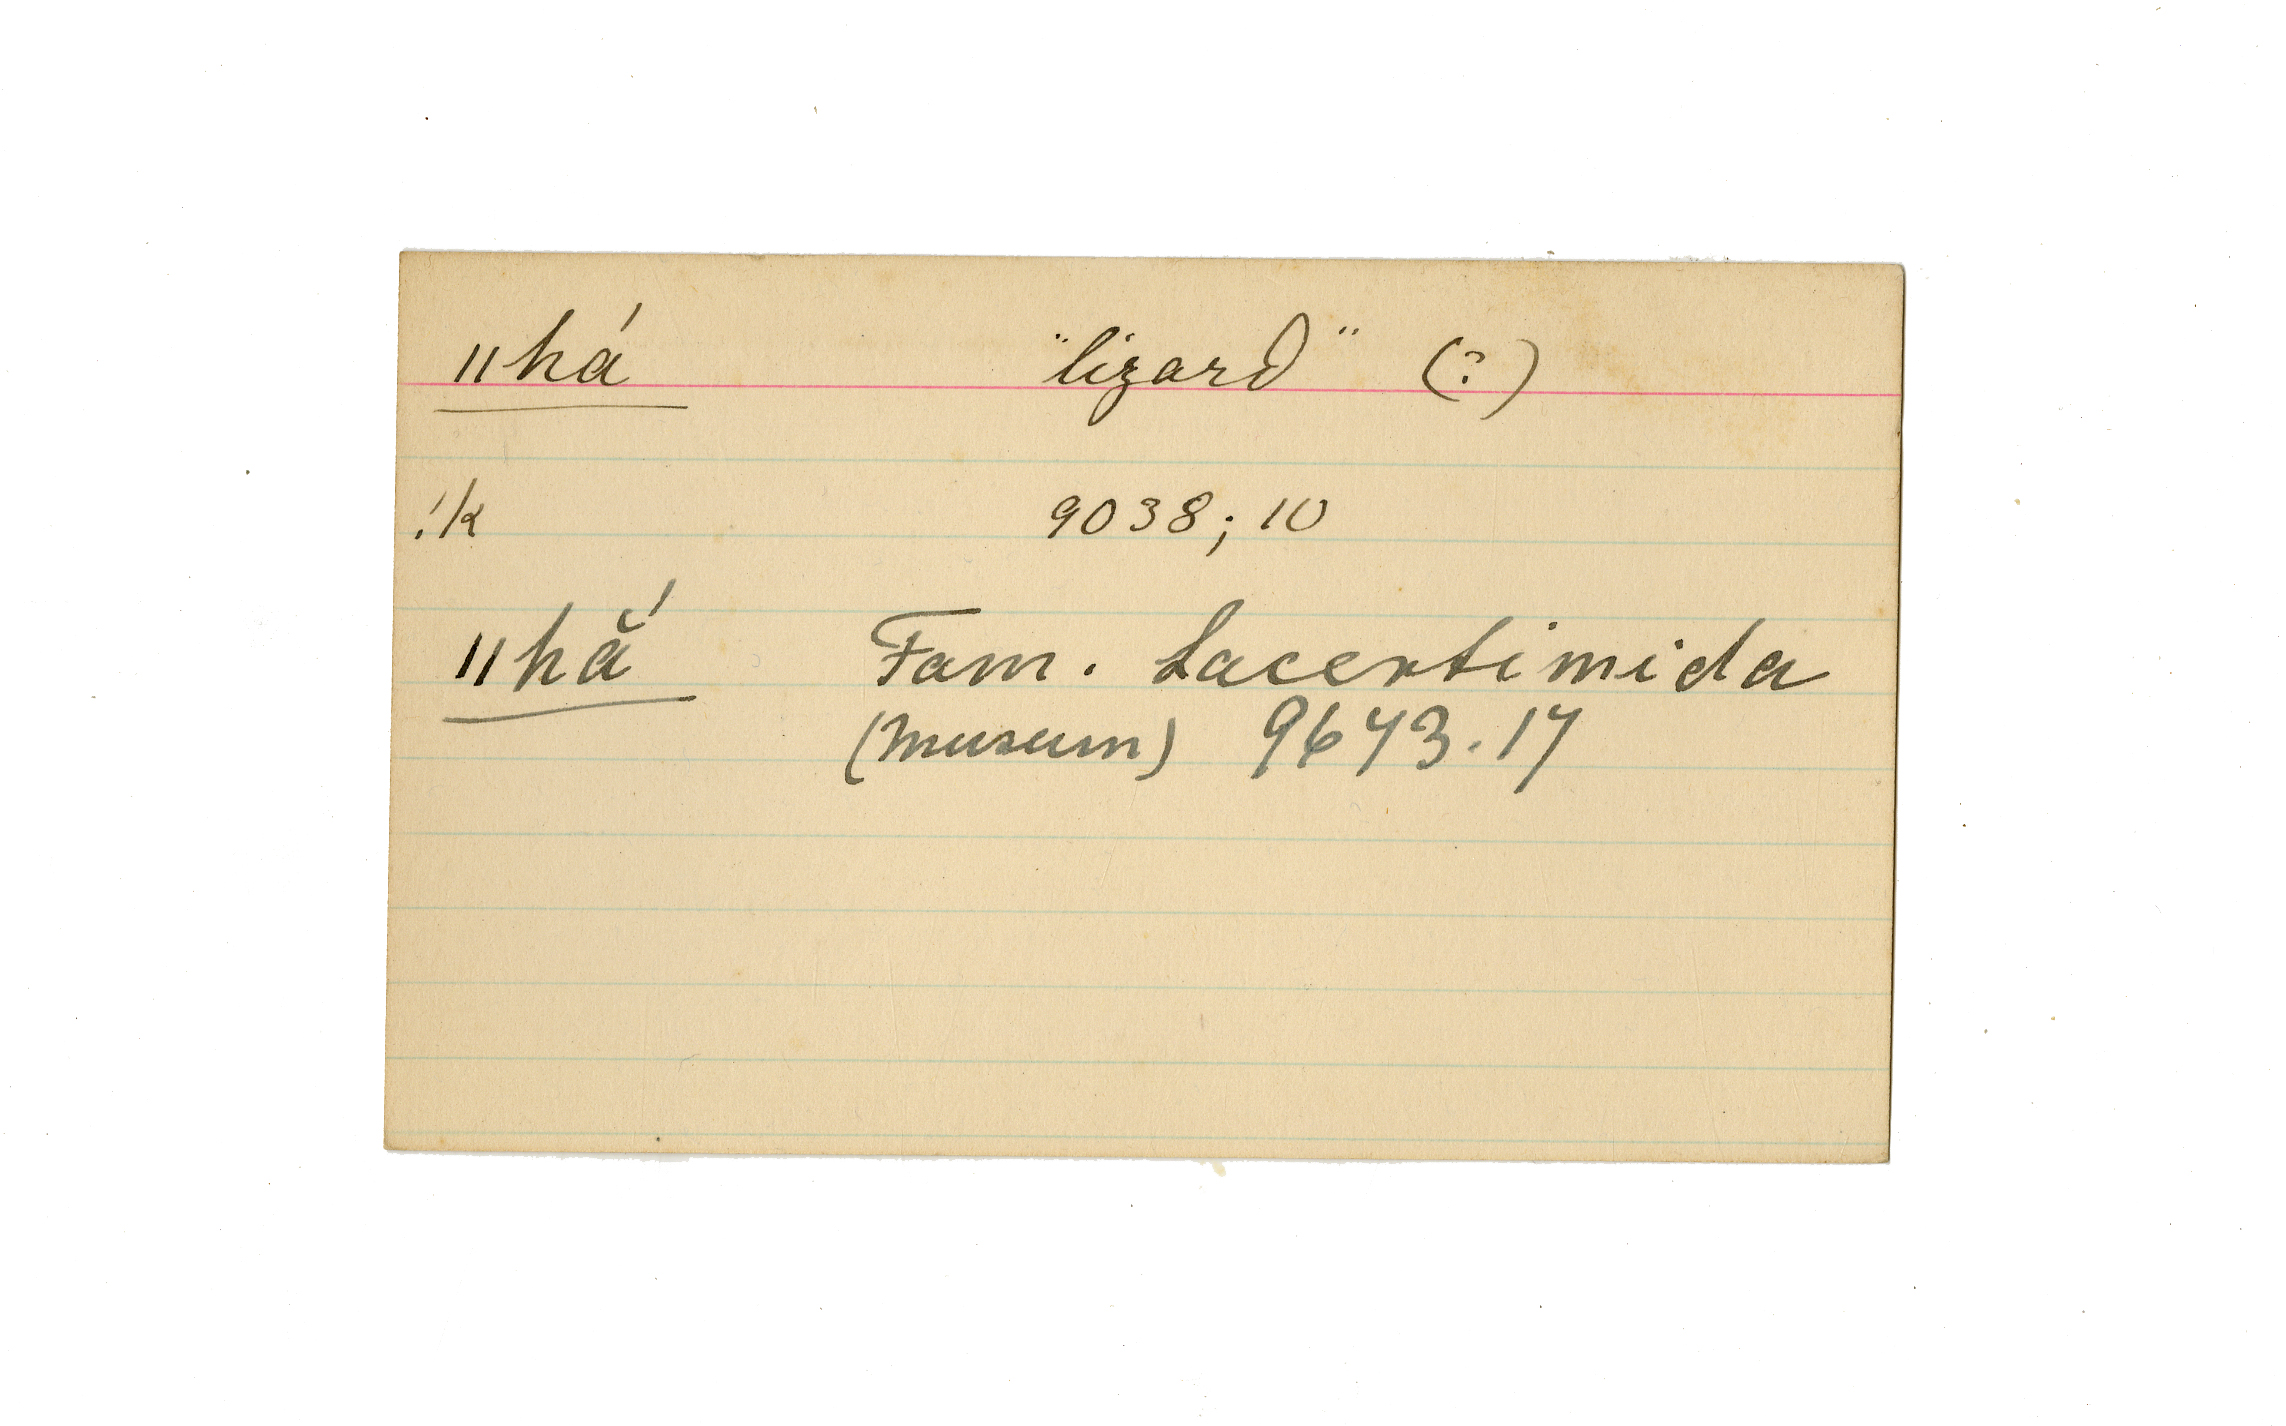 ǁhá "lizard" (?)
!k 9038; 10
ǁhắ Fam. Lacertimida
(Museum) 9643.17